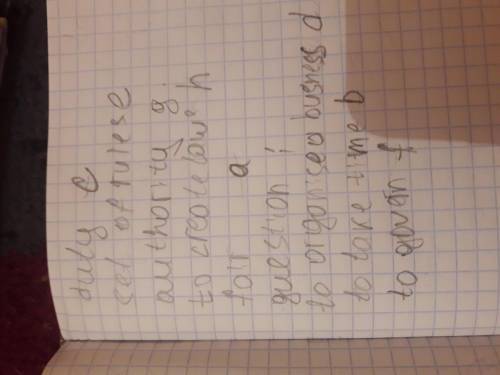 duty c
set of rules e
authority g.
to create laws h
fair a
question i
to organised business d
to take time b
to govern f